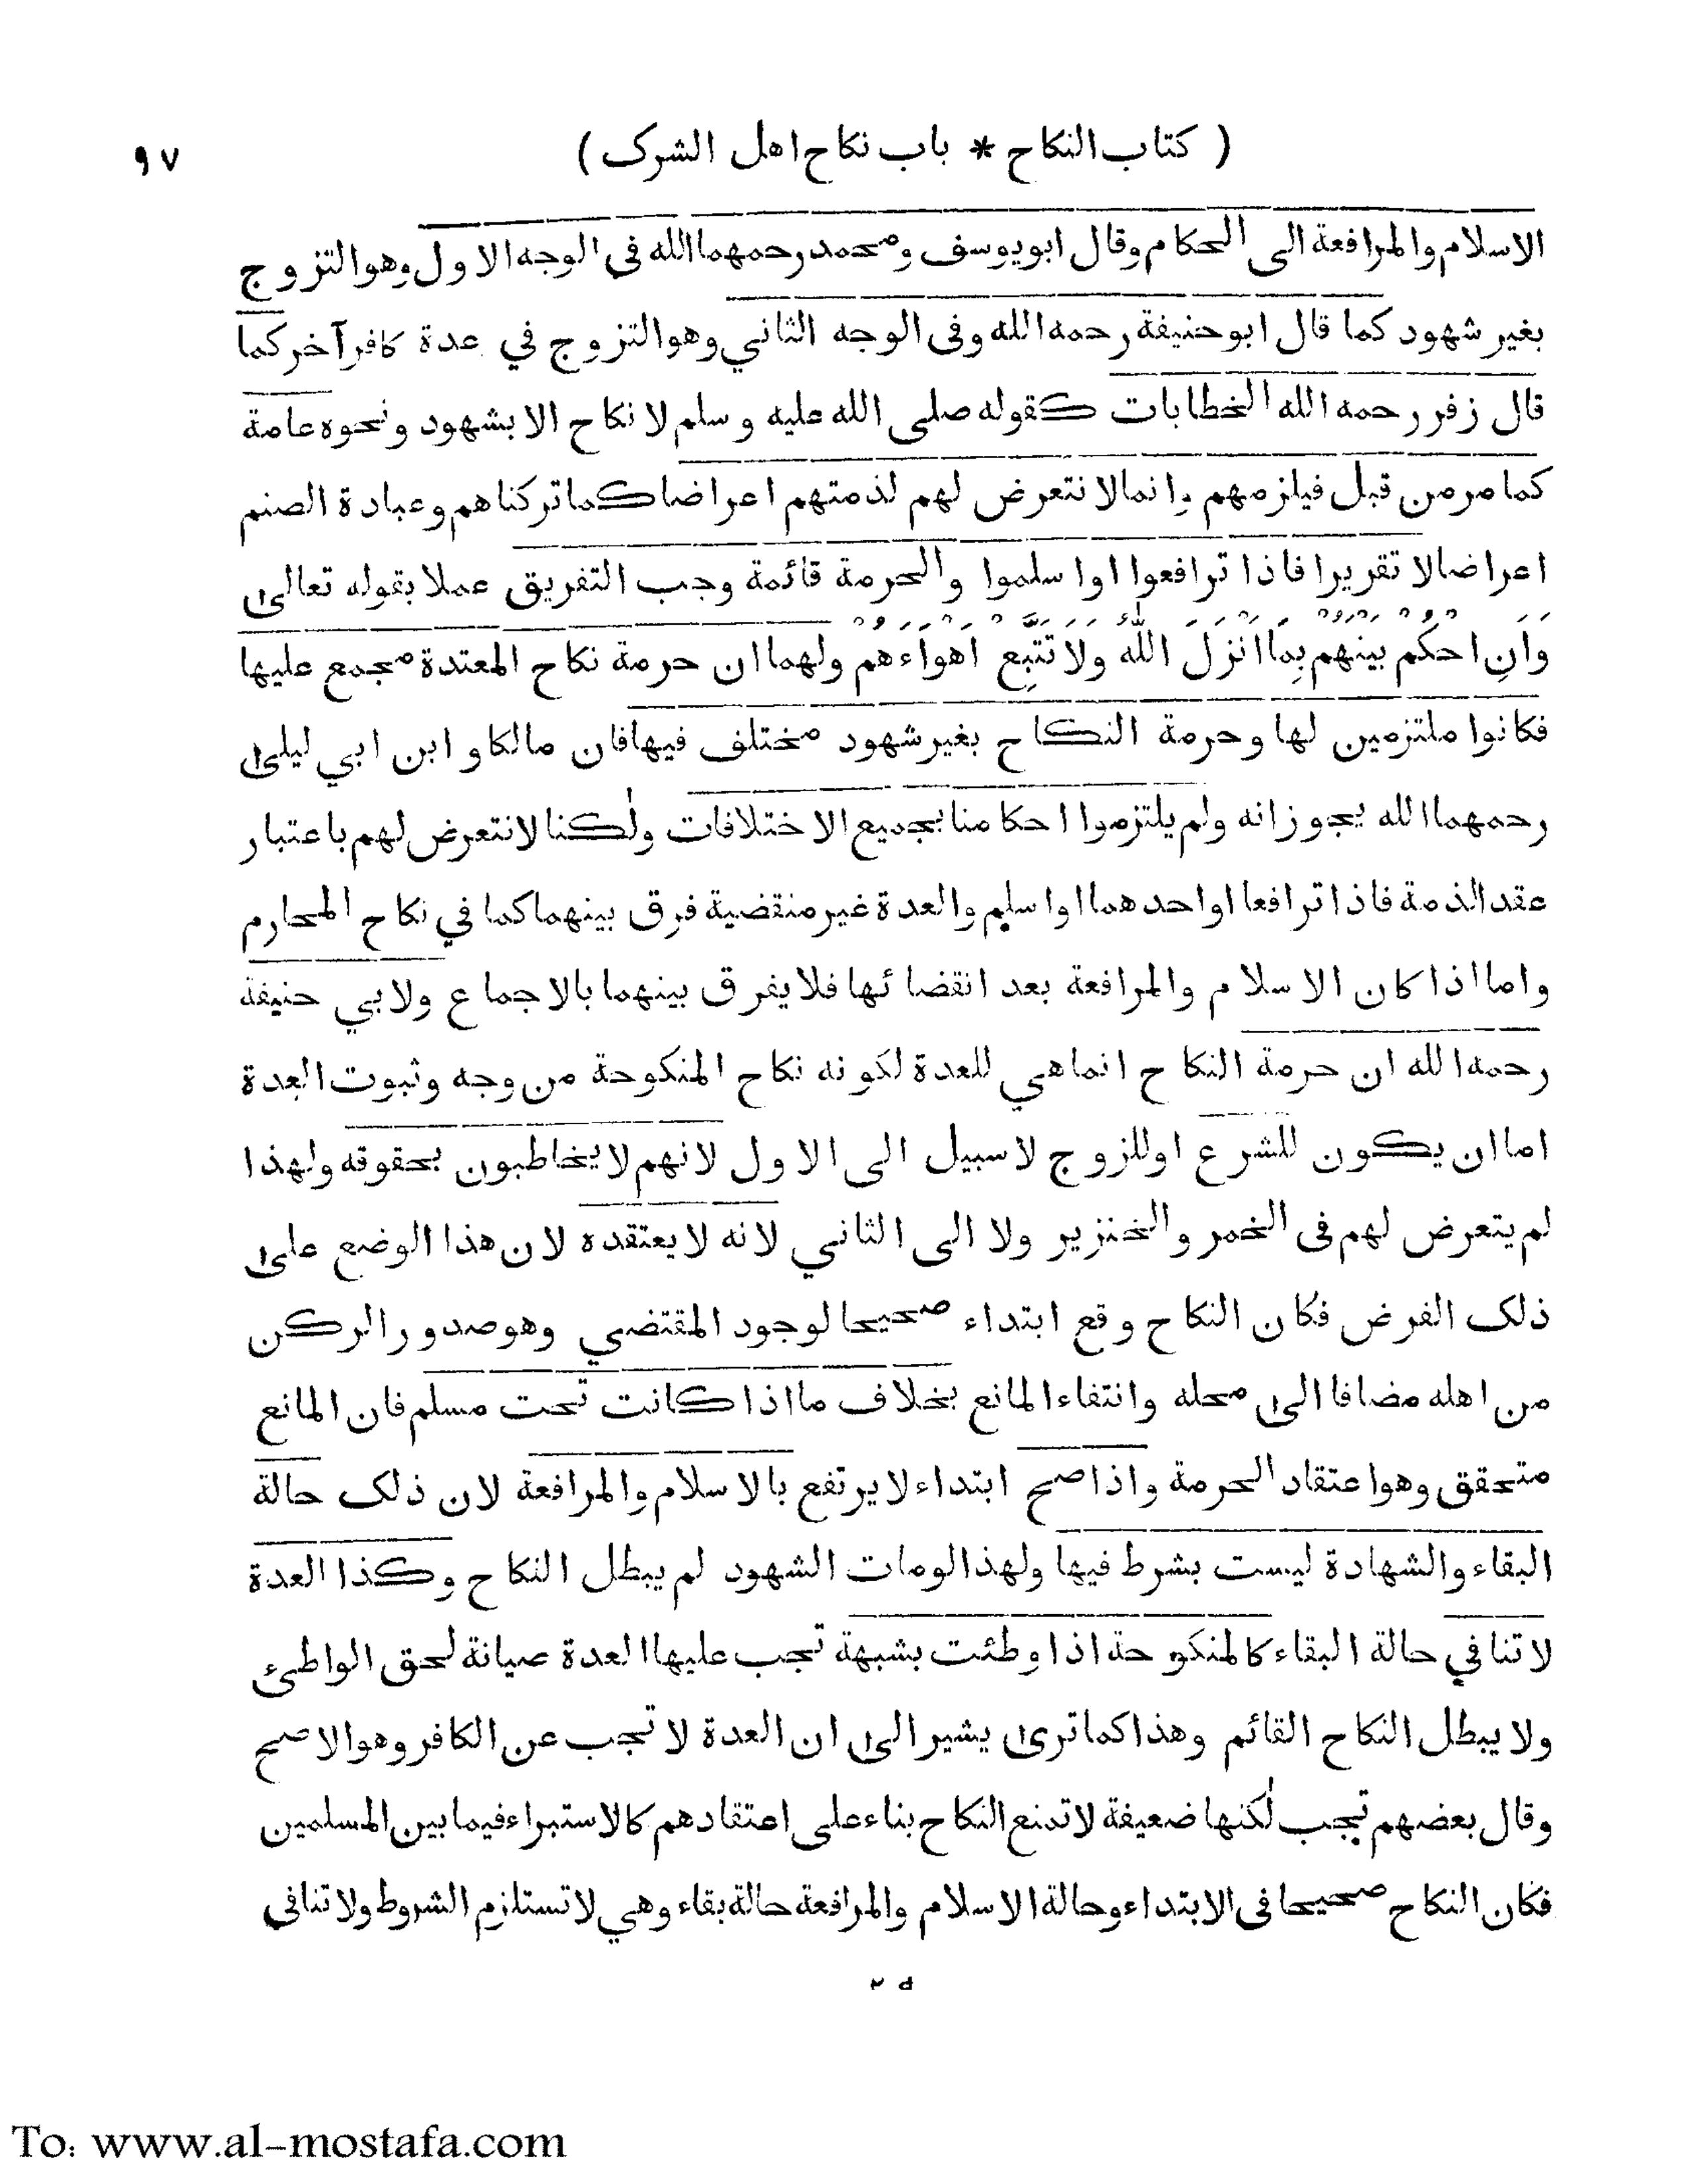 ( كتاب النكاح * باب نكاح اهل الشرك ) ٩٧
الاسلام والمرافعة الى الحكام وقال ابويوسف ومحمد رحمهما الله في الوجه الاول وهو التزوج
بغير شهود كما قال ابو حنيفة رحمه الله وفى الوجه الثاني وهو التزوج في عدة كافر آخر كما
قال زفر رحمه الله الخطابات كقوله صلى الله عليه وسلم لا نكاح الا بشهود ونحوه عامة
كما مر من قبل فيلزمهم وانما لا نتعرض لهم لذمتهم اعراضا كما تركناهم وعبادة الصنم
اعراضا لا تقريرا فاذا ترافعوا او اسلموا والحرمة قائمة وجب التفريق عملا بقوله تعالىٰ
وَاَنِ احْكُمْ بَيْنَهُمْ بِمَا اَنْزَلَ اللّٰهُ وَلَا تَتَّبِعْ اَهْوَاءَهُمْ ولهما ان حرمة نكاح المعتدة مجمع عليها
فكانوا ملتزمين لها وحرمة النكاح بغير شهود مختلف فيها فان مالكا و ابن ابي ليلىٰ
رحمهما الله يجوزانه ولم يلتزموا احكامنا بجميع الاختلافات ولٰكنا لا نتعرض لهم باعتبار
عقد الذمة فاذا ترافعا او احدهما او اسلم والعدة غير منقضية فرق بينهما كما في نكاح المحارم
واما اذا كان الاسلام والمرافعة بعد انقضائها فلا يفرق بينهما بالاجماع ولابي حنيفة
رحمه الله ان حرمة النكاح انما هي للعدة لكونه نكاح المنكوحة من وجه وثبوت العدة
اما ان يكون للشرع او للزوج لا سبيل الى الاول لانهم لا يخاطبون بحقوقه ولهذا
لم يتعرض لهم فى الخمر والخنزير ولا الى الثاني لانه لا يعتقده لان هذا الوضع علىٰ
ذلك الفرض فكان النكاح وقع ابتداء صحيحا لوجود المقتضي وهو صدور الركن
من اهله مضافا الىٰ محله وانتفاء المانع بخلاف ما اذا كانت تحت مسلم فان المانع
متحقق وهو اعتقاد الحرمة واذا صح ابتداء لا يرتفع بالاسلام والمرافعة لان ذلك حالة
البقاء والشهادة ليست بشرط فيها ولهذا لومات الشهود لم يبطل النكاح وكذا العدة
لا تنافي حالة البقاء كالمنكوحة اذا وطئت بشبهة تجب عليها العدة صيانة لحق الواطئ
ولا يبطل النكاح القائم وهذا كما ترىٰ يشير الىٰ ان العدة لا تجب عن الكافر وهو الاصح
وقال بعضهم تجب لٰكنها ضعيفة لا تمنع النكاح بناء على اعتقادهم كالاستبراء فيما بين المسلمين
فكان النكاح صحيحا فى الابتداء وحالة الاسلام والمرافعة حالة بقاء وهي لا تستلزم الشروط ولا تنافى
To: www.al-mostafa.com